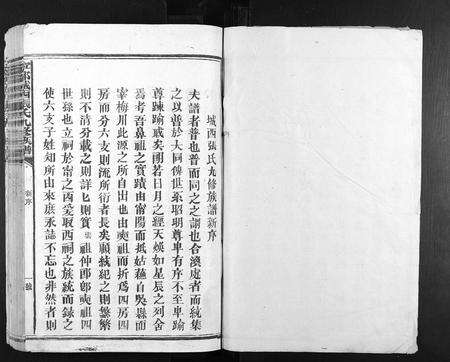 城西張氏九修族譜新序
夫譜者普也普而同之之謂也合渙處者而統集
之以善於大同俾世系昭明尊卑有序不至卑踰
尊踈踰戚矣朗若日月之經天煥如星辰之列舍
焉考吾鼻祖之實蹟由甯陽而抵姑蘇自吳縣而
宰梅川此源之所自出也由奭祖而折為四房四
房而分六支則流所衍者長矣顧統紀之則繁
則不清分載之則詳且則實 祖仲郎郎奭祖四
世孫也立祠於甯之西爰取西祠之族統而錄之
使六支子姓知所由來庶永誌不忘也非然者則
新序